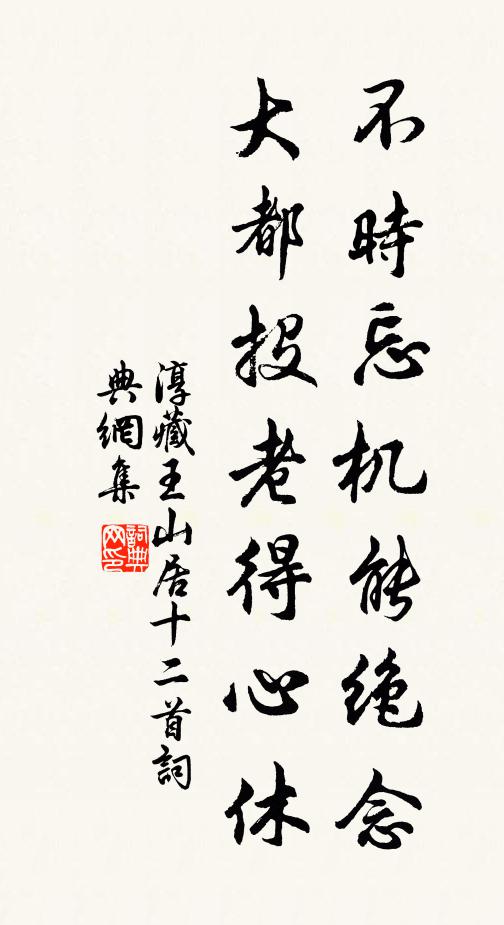 不時忘机能绝念
大都投老得心休
淳藏王山居十二首詞
典網集
詞典网印